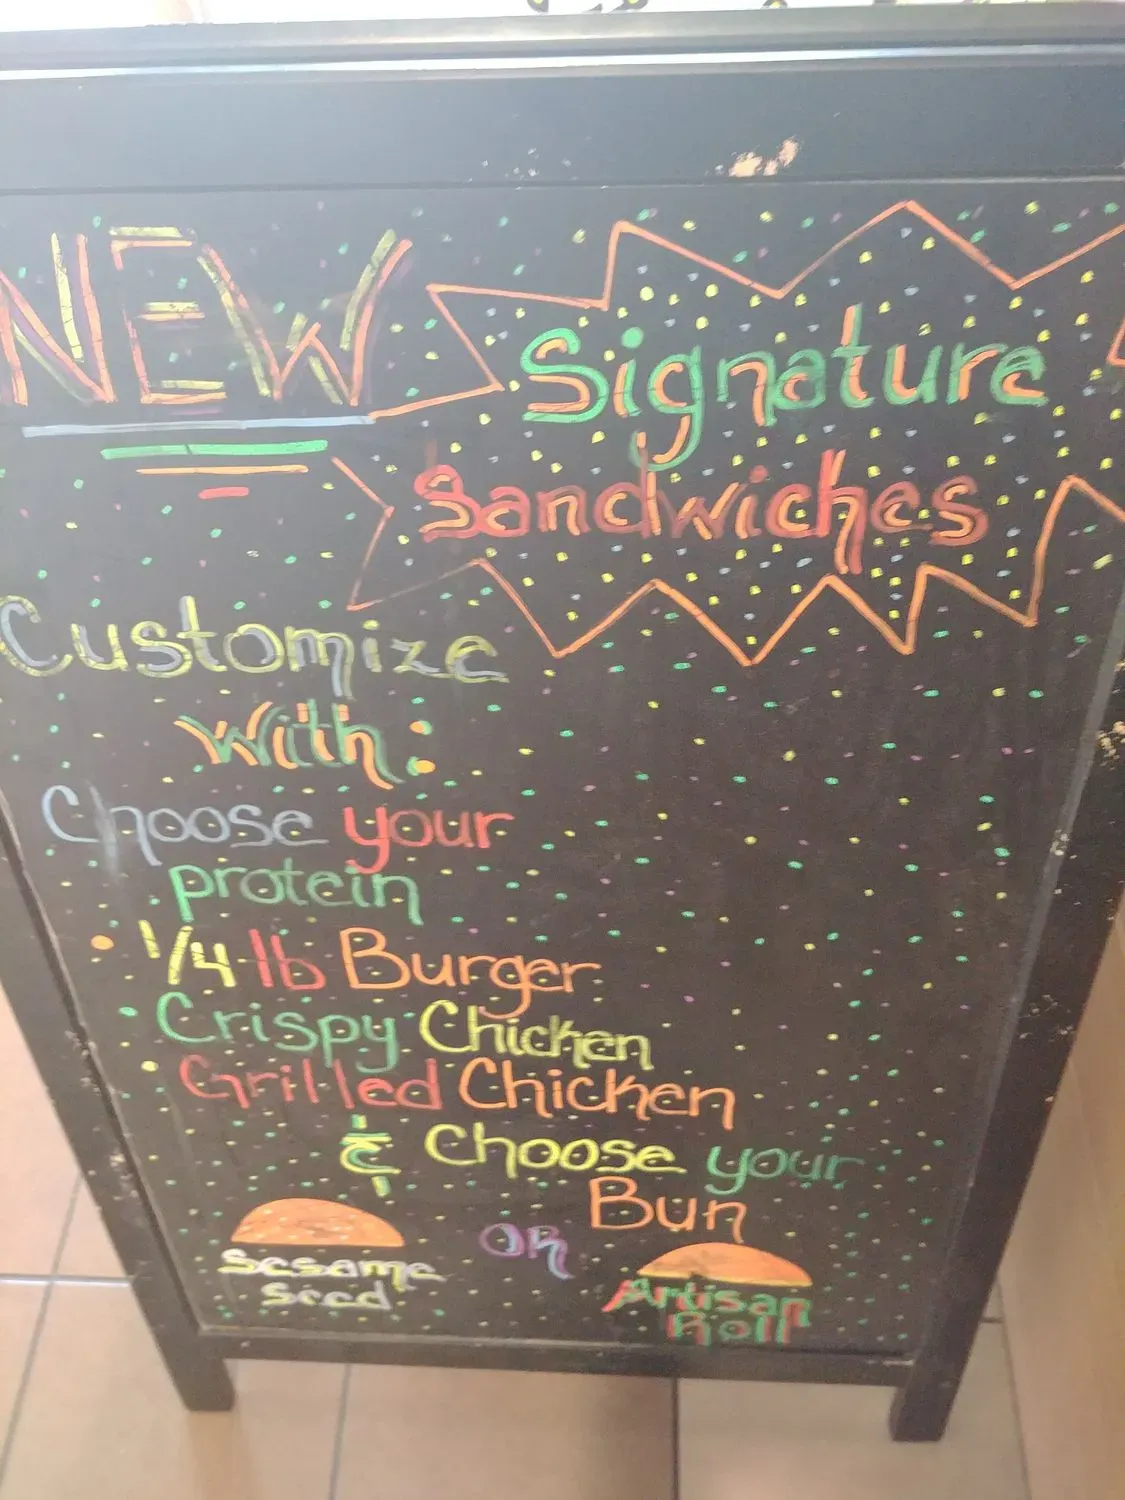 NEW
Signature
Sandwiches
Customize
With:
Choose your
protein
• 1/4 lb Burger
• Crispy Chicken
• Grilled Chicken
& Choose your
Bun
Sesame
Seed
OR
Artisan
Roll